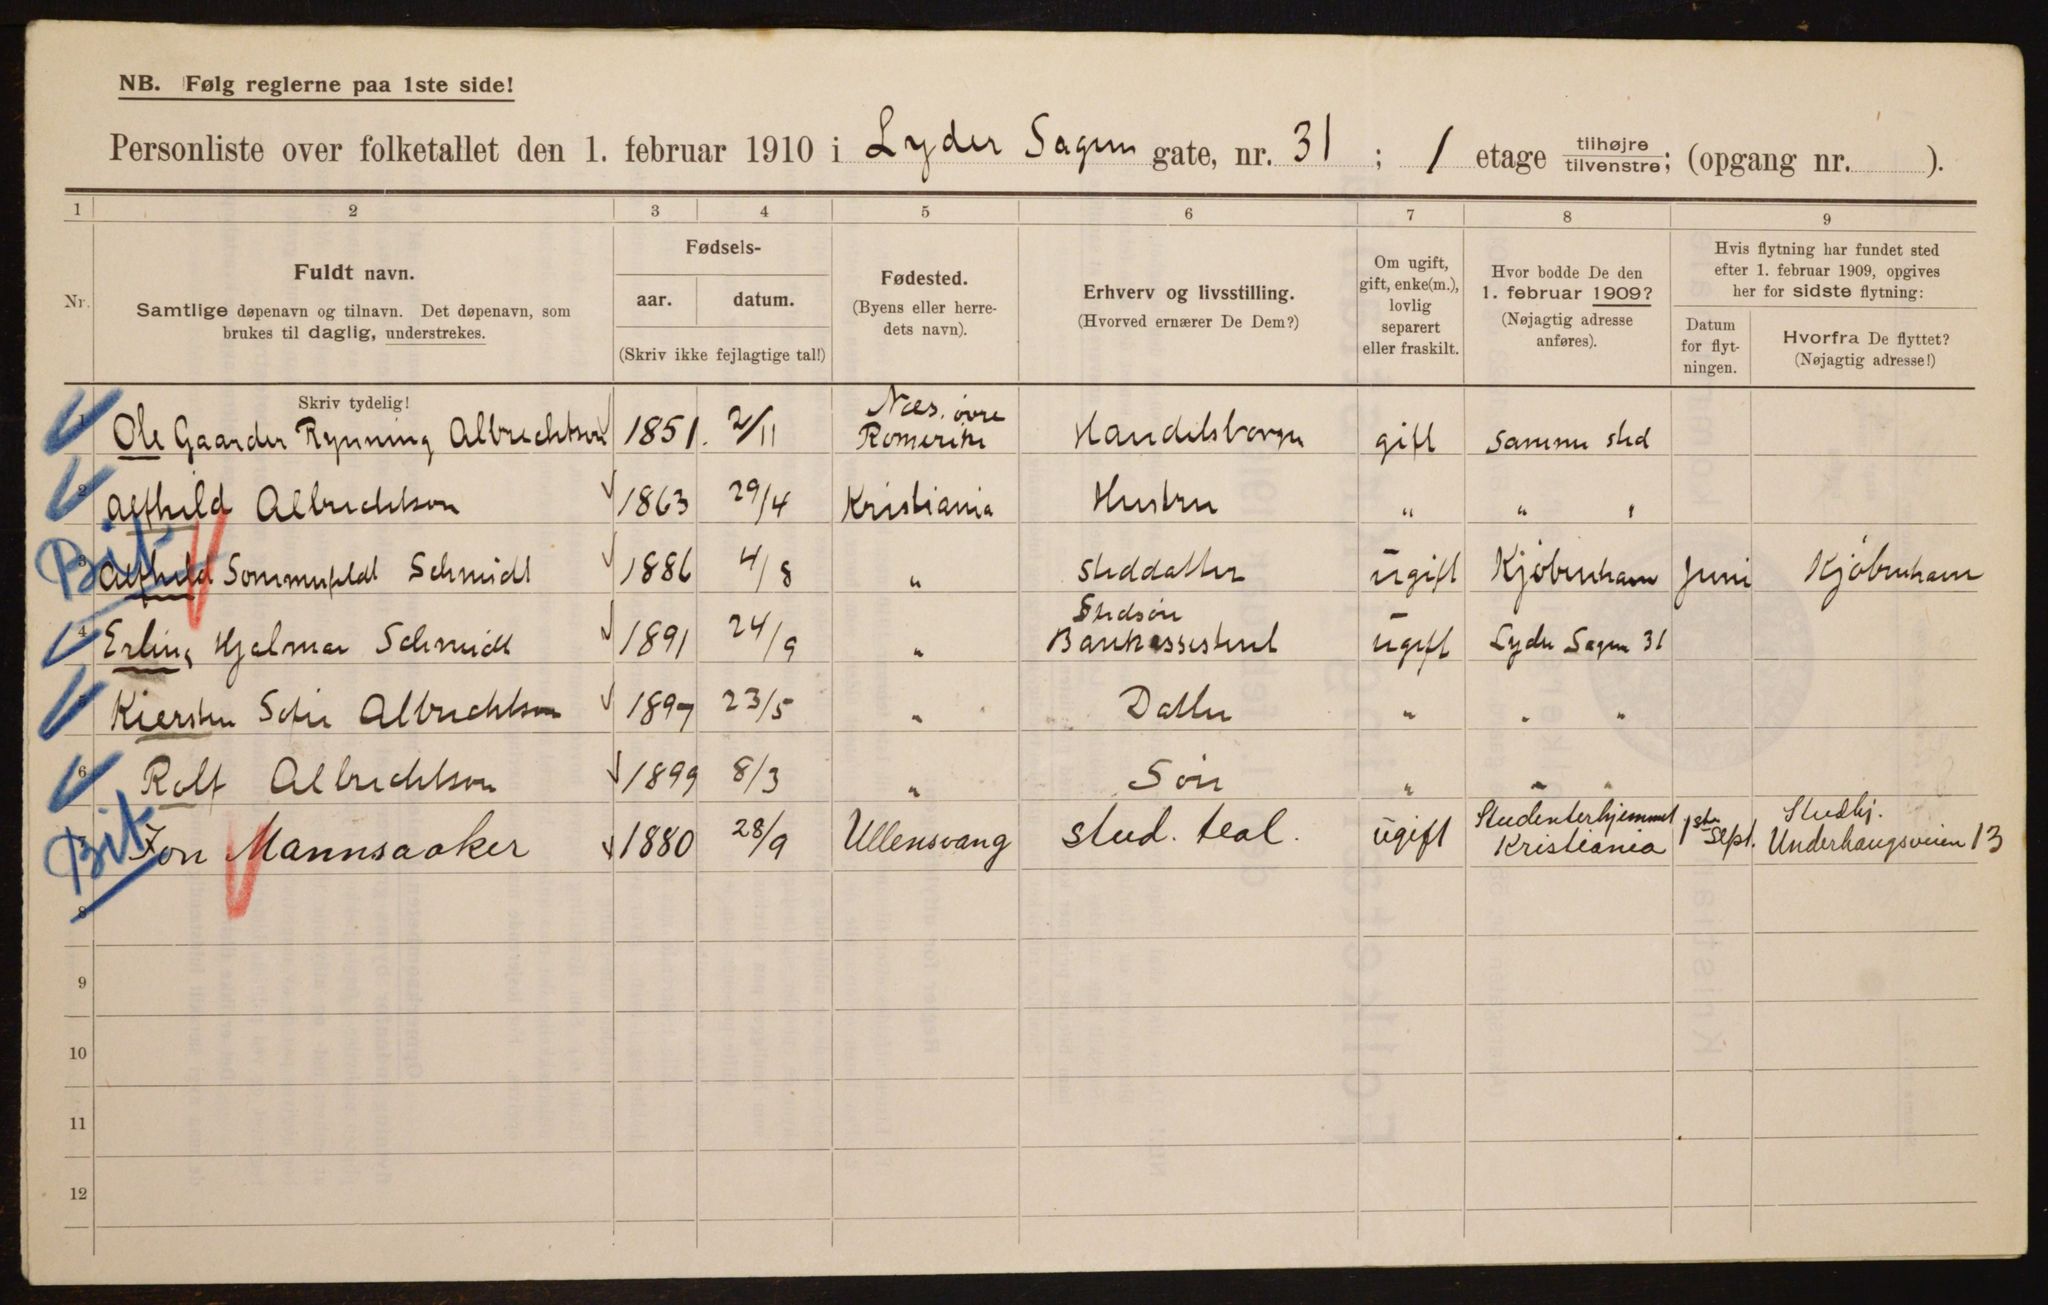 NB. Følg reglerne paa 1ste side!
Personliste over folketallet den 1. februar 1910 i Lyder Sagens gate, nr. 31; 1 etage tilhøjre/tilvenstre; (opgang nr. ).
1 2 3 4 5 6 7 8 9
Nr.
Fuldt navn.
Samtlige døpenavn og tilnavn. Det døpenavn, som
brukes til daglig, understrekes.
Fødsels-
aar. datum.
(Skriv ikke fejlagtige tal!)
Fødested.
(Byens eller herre-
dets navn).
Erhverv og livsstilling.
(Hvorved ernærer De Dem?)
Om ugift,
gift, enke(m.),
lovlig
separert
eller fraskilt.
Hvor bodde De den
1. februar 1909?
(Nøjagtig adresse
anføres).
Hvis flytning har fundet sted
efter 1. februar 1909, opgives
her for sidste flytning:
Datum
for flyt-
ningen.
Hvorfra De flyttet?
(Nøjagtig adresse!)
Skriv tydelig!
1 Ole Gaarder Rynning Albrechtson 1851. 2/11 Næs. øvre Romerike Handelsborger gift Samme sted
2 Alfhild Albrechtson 1863 29/4 Kristiania Hustru " " "
Bit
3 Alfhild Sommerfeldt Schmidt 1886 4/8 " Steddatter ugift Kjøbenhavn Juni Kjøbenhavn
4 Erling Hjalmar Schmidt 1891 24/9 " Stedsøn Bankassistent ugift Lyder Sagen 31
5 Kiersten Sofie Albrechtson 1897 23/5 " Datter " " "
6 Rolf Albrechtson 1899 8/3 " Søn " " "
Bit
Jon Mannsaaker 1880 28/9 Ullensvang stud. teol. ugift Studenterhjemmet Kristiania 1ste Sept. Studhj. Underhaugsveien 13
8
9
10
11
12